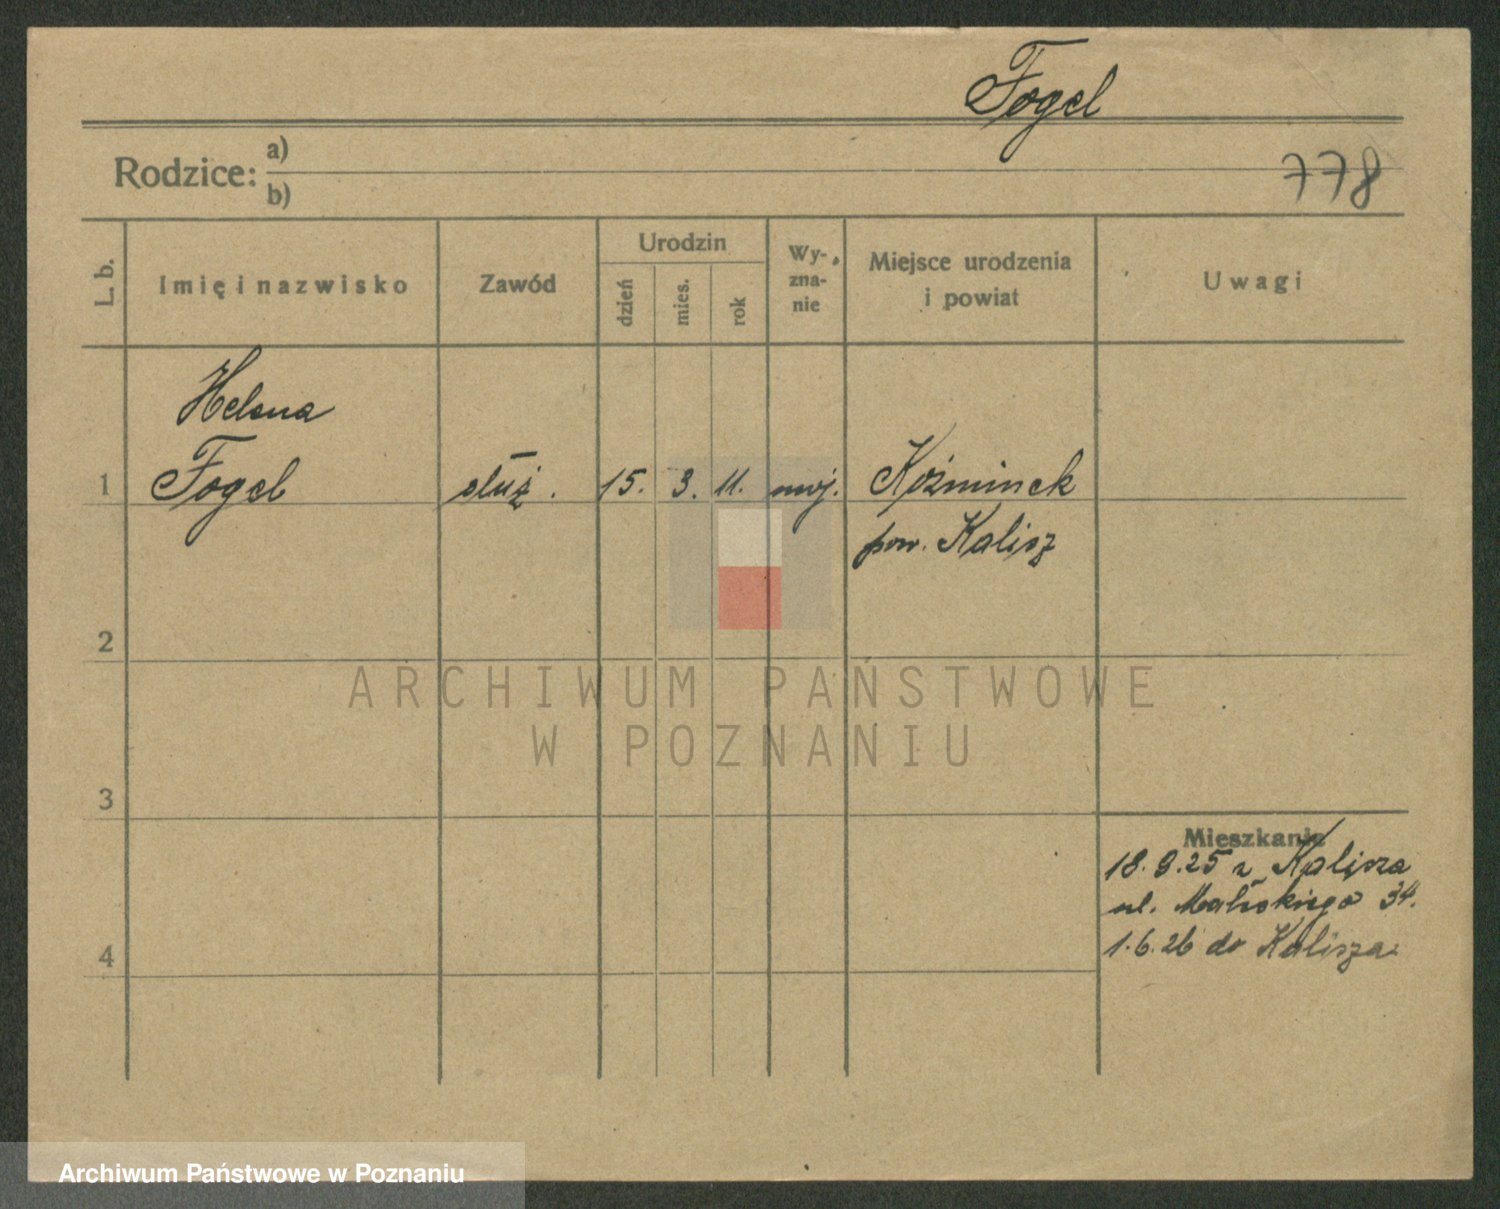 Fogel
Rodzice: a)
b)
778
L. b.
Imię i nazwisko
Zawód
Urodzin
dzień
mies.
rok
Wy-
zna-
nie
Miejsce urodzenia
i powiat
Uwagi
Helena
1 Fogel służ. 15. 3. 11. mojż. Koźminek
pow. Kalisz
2
3
4
Mieszkanie
18. 9. 25 z Kalisza
ul. 34.
1. 6. 26 do Kalisza
ARCHIWUM PAŃSTWOWE
W POZNANIU
Archiwum Państwowe w Poznaniu